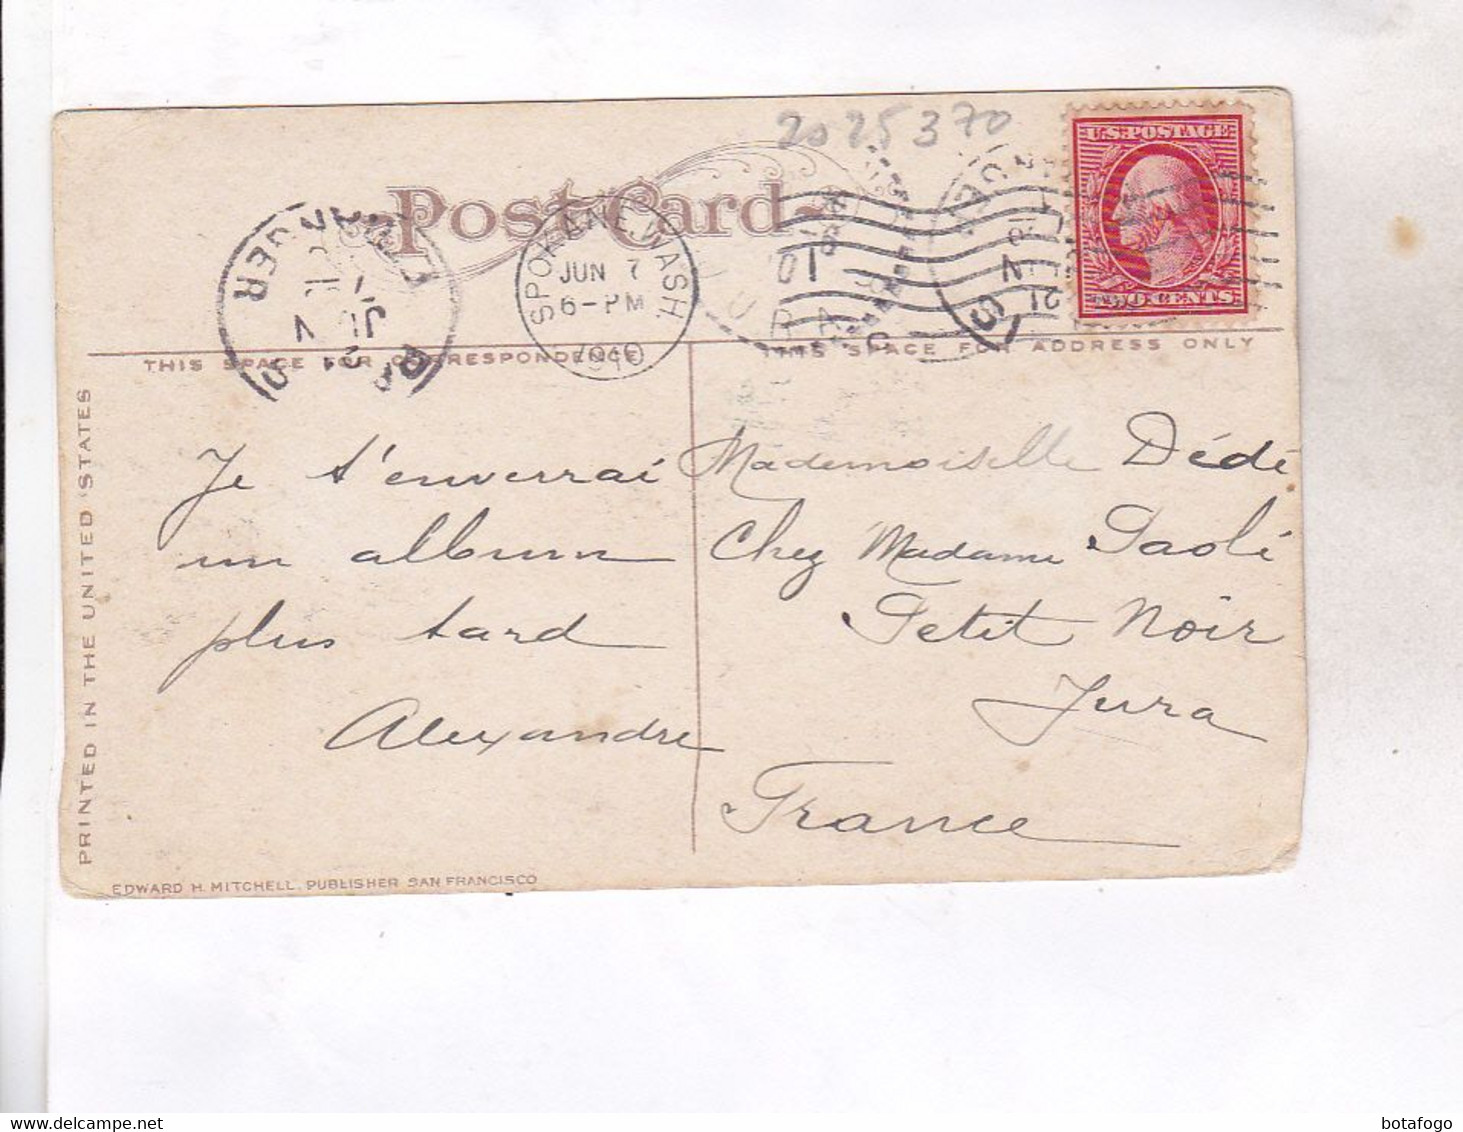 2025370
U.S. POSTAGE
TWO CENTS
Post Card
SPOKANE, WASH.
JUN 7
6-PM
1910
THIS SPACE FOR CORRESPONDENCE
THIS SPACE FOR ADDRESS ONLY
Je t'enverrai
un album
plus tard
Alexandre
Mademoiselle Dédé
Chez Madame Paoli
Petit Noir
Jura
France
PRINTED IN THE UNITED STATES
EDWARD H. MITCHELL, PUBLISHER SAN FRANCISCO
botafogo